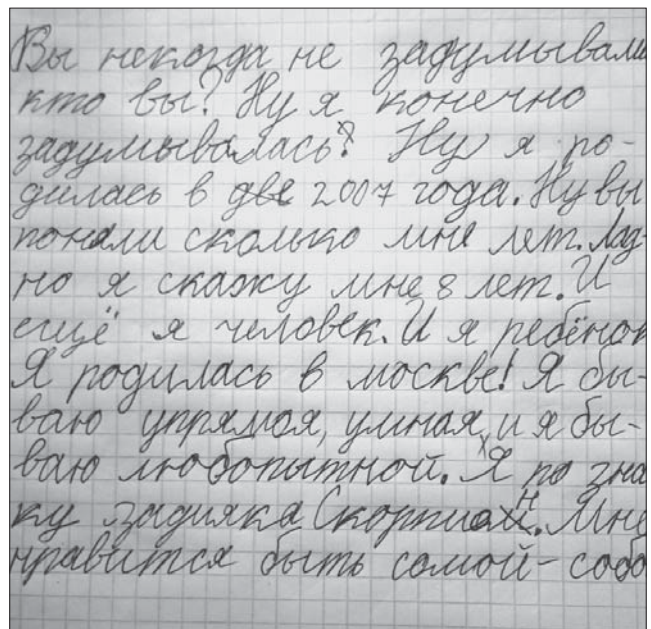 Вы некогда не задумывали
кто вы? Ну я конечно
задумывалась? Ну я ро-
дилась в две 2007 года. Ну вы
поняли сколько мне лет. Лад-
но я скажу мне 8 лет. И
ещё я человек. И я ребёнок
Я родилась в москве! Я бы-
ваю упрямая, умная, и я бы-
ваю любопытной. Я по зна
ку задияка Скорпион. Мне
нравится быть самой-собо